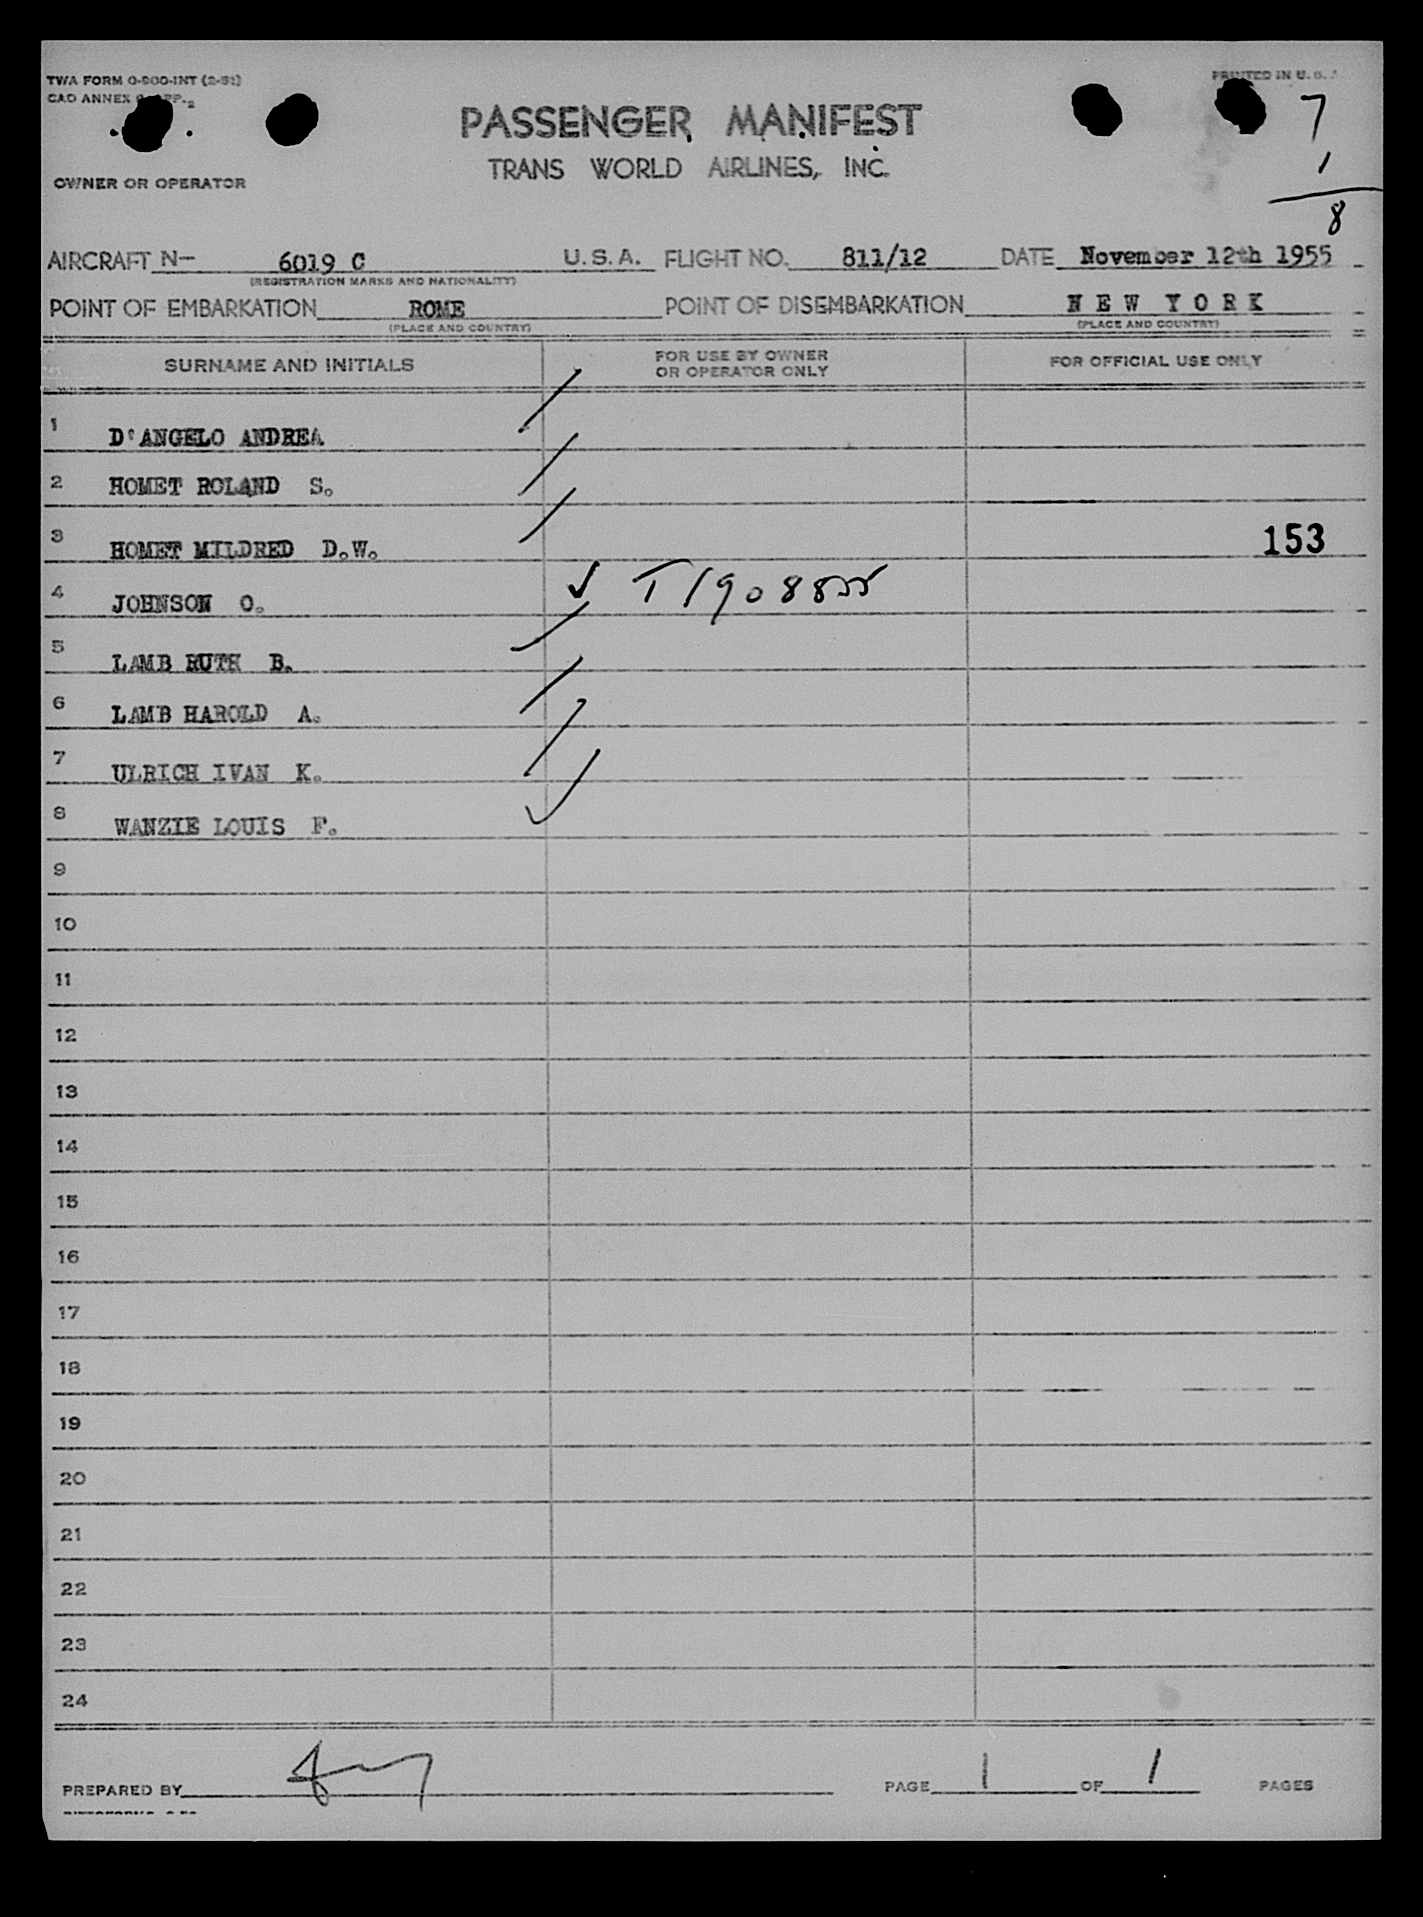 TWA FORM O-900-INT (2-51)
PRINTED IN U. S.
CAO ANNEX
7
PASSENGER MANIFEST
1
TRANS WORLD AIRLINES, INC.
OWNER OR OPERATOR
8
AIRCRAFT N- 6019 C U.S.A. FLIGHT NO. 811/12 DATE November 12th 1955
(REGISTRATION MARKS AND NATIONALITY)
POINT OF EMBARKATION ROME POINT OF DISEMBARKATION N E W Y O R K
(PLACE AND COUNTRY) (PLACE AND COUNTRY)
SURNAME AND INITIALS FOR USE BY OWNER OR OPERATOR ONLY FOR OFFICIAL USE ONLY
1 D'ANGELO ANDREA
2 HOMET ROLAND S.
3 HOMET MILDRED D.W. 153
4 JOHNSON O. T1908855
5 LAMB RUTH B.
6 LAMB HAROLD A.
7 ULRICH IVAN K.
8 WANZIE LOUIS F.
9
10
11
12
13
14
15
16
17
18
19
20
21
22
23
24
PREPARED BY PAGE 1 OF 1 PAGES